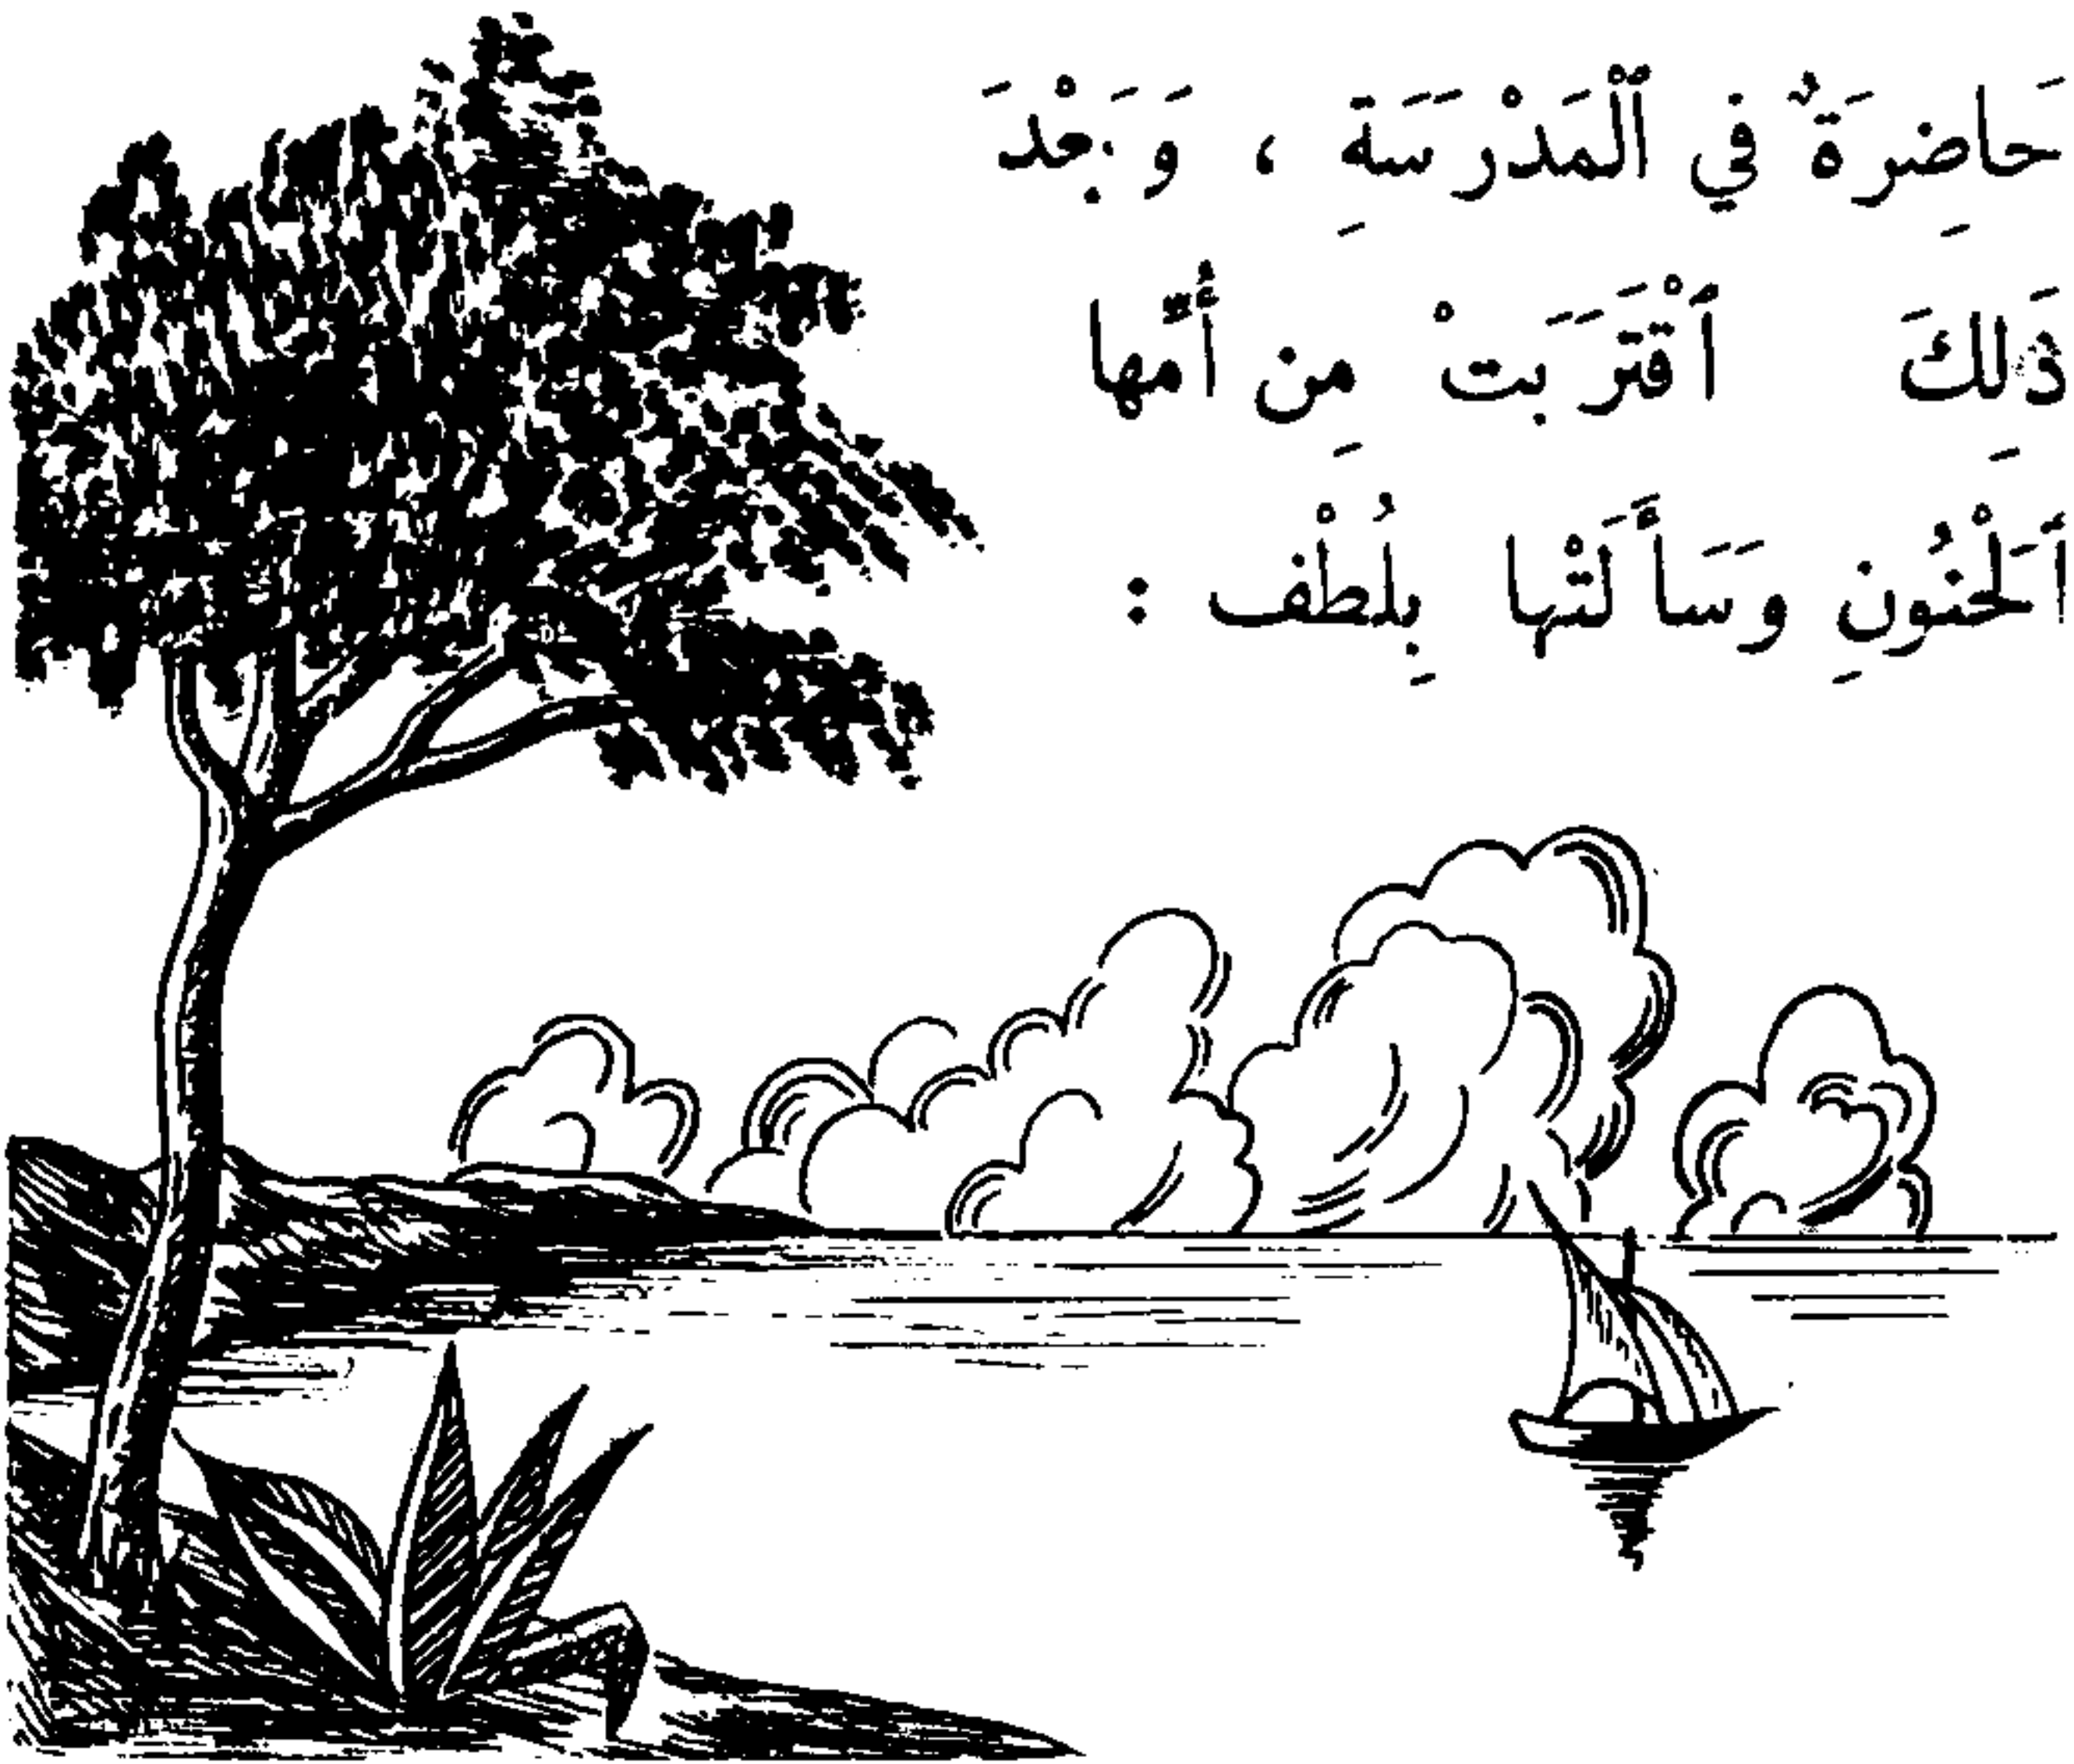 حَاضِرَةٌ في ٱلْمَدْرَسَةِ ، وَبَعْدَ
ذَلِكَ ٱقْتَرَبَتْ مِن أُمَّها
ٱَلْحَنُونِ وسَأَلَتْها بِلُطْف :